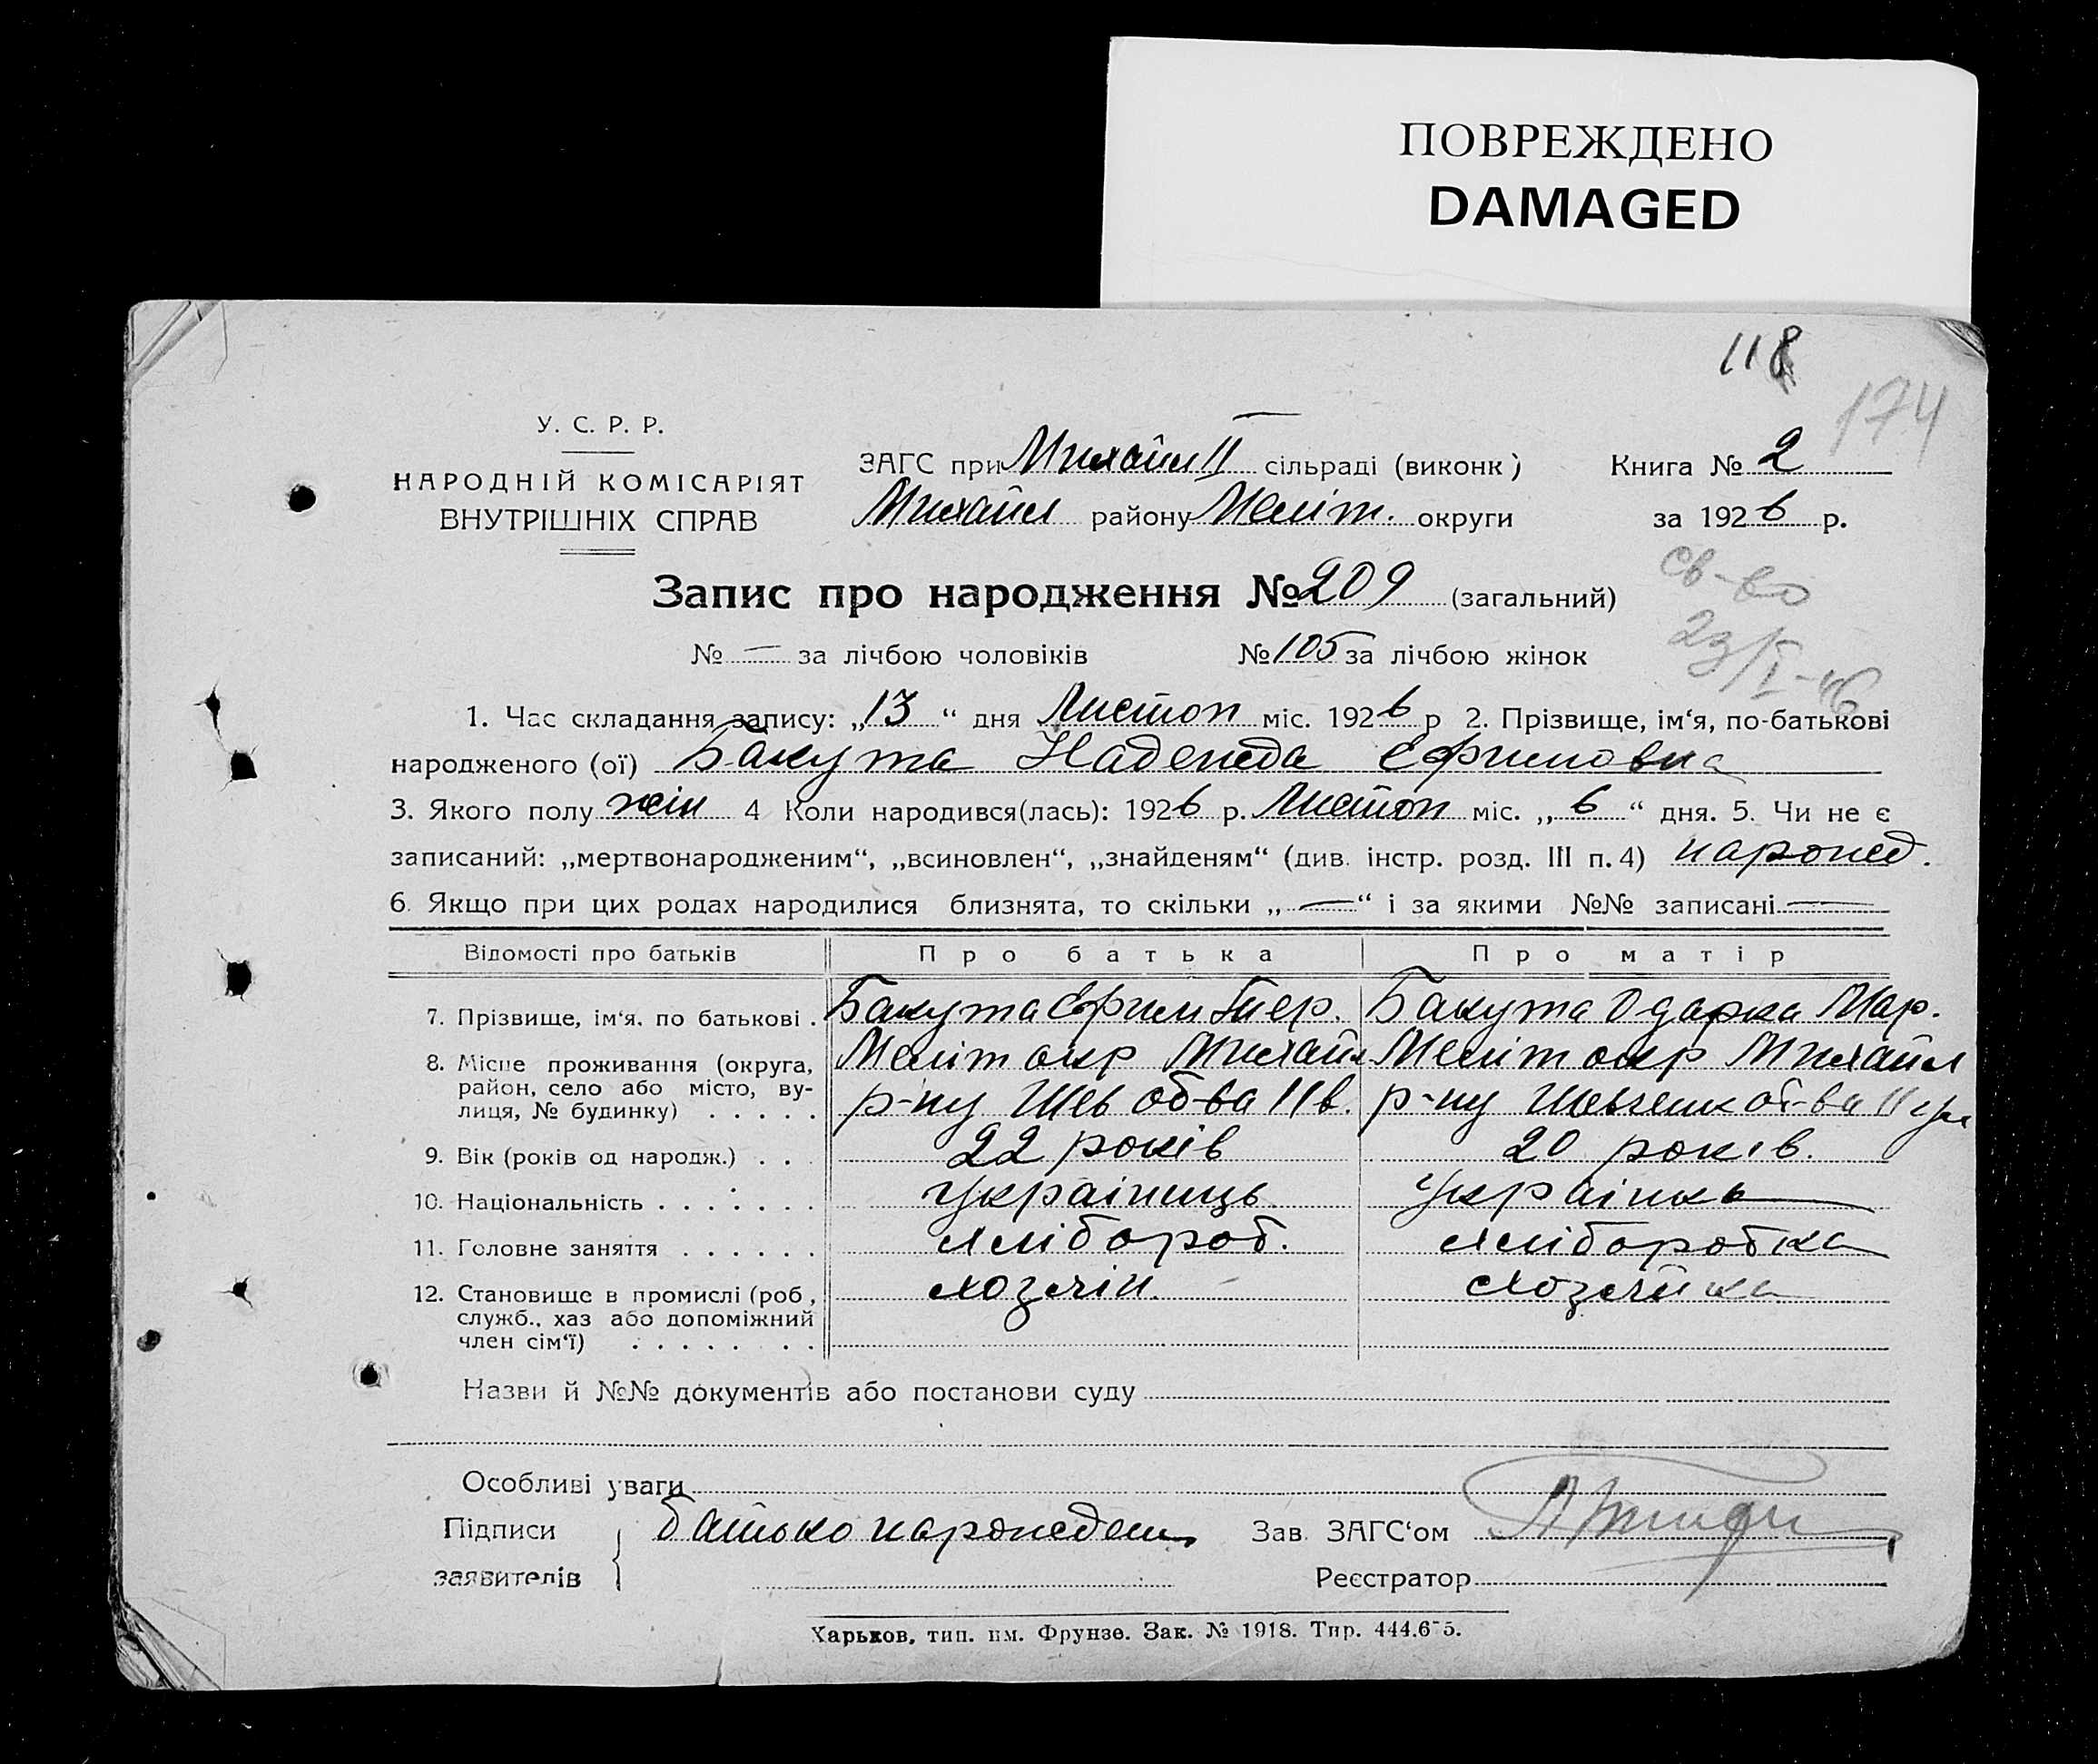 ПОВРЕЖДЕНО
DAMAGED
118
174
У. С. Р. Р.
НАРОДНІЙ КОМІСАРІЯТ
ВНУТРІШНІХ СПРАВ
ЗАГС при Михайл II сільраді (виконк) Книга № 2
Михайл району Меліт. округи за 1926 р.
Запис про народження № 209 (загальний)
св-во
23/I-46
№ — за лічбою чоловіків № 105 за лічбою жінок
1. Час складання запису: „13“ дня Листоп міс. 1926 р 2. Прізвище, ім‘я, по-батькові
народженого (ої) Бакута Надежда Єфимовна
3. Якого полу жін 4 Коли народився(лась): 1926 р. Листоп міс. „6“ дня. 5. Чи не є
записаний: „мертвонародженим“, „всиновлен“, „знайденям“ (див. інстр. розд. III п. 4) нарожд.
6. Якщо при цих родах народилися близнята, то скільки „—“ і за якими №№ записані —
Відомості про батьків Про батька Про матір
7. Прізвище, ім‘я, по батькові . Бакута Єфим Бакута Одарка Мар.
8. Місце проживання (округа, Меліт окр Михайл Меліт окр Михайл
район, село або місто, ву- р-ну Шев об-ва II в. р-ну Шевченк об-ва II
лиця, № будинку) . . . . .
9. Вік (років од народж.) . . . 22 років 20 років.
10. Національність . . . . . . . українець українкь
11. Головне заняття . . . . . . хлібороб. хліборобка
12. Становище в промислі (роб., хозяін. хозяйка
служб., хаз або допоміжний
член сім‘ї) . . . . . . .
Назви й №№ документів або постанови суду
Особливі уваги
Підписи батько нарожден Зав. ЗАГС‘ом
заявителів Реєстратор
Харьков, тип. им. Фрунзе. Зак. № 1918. Тир. 444.675.